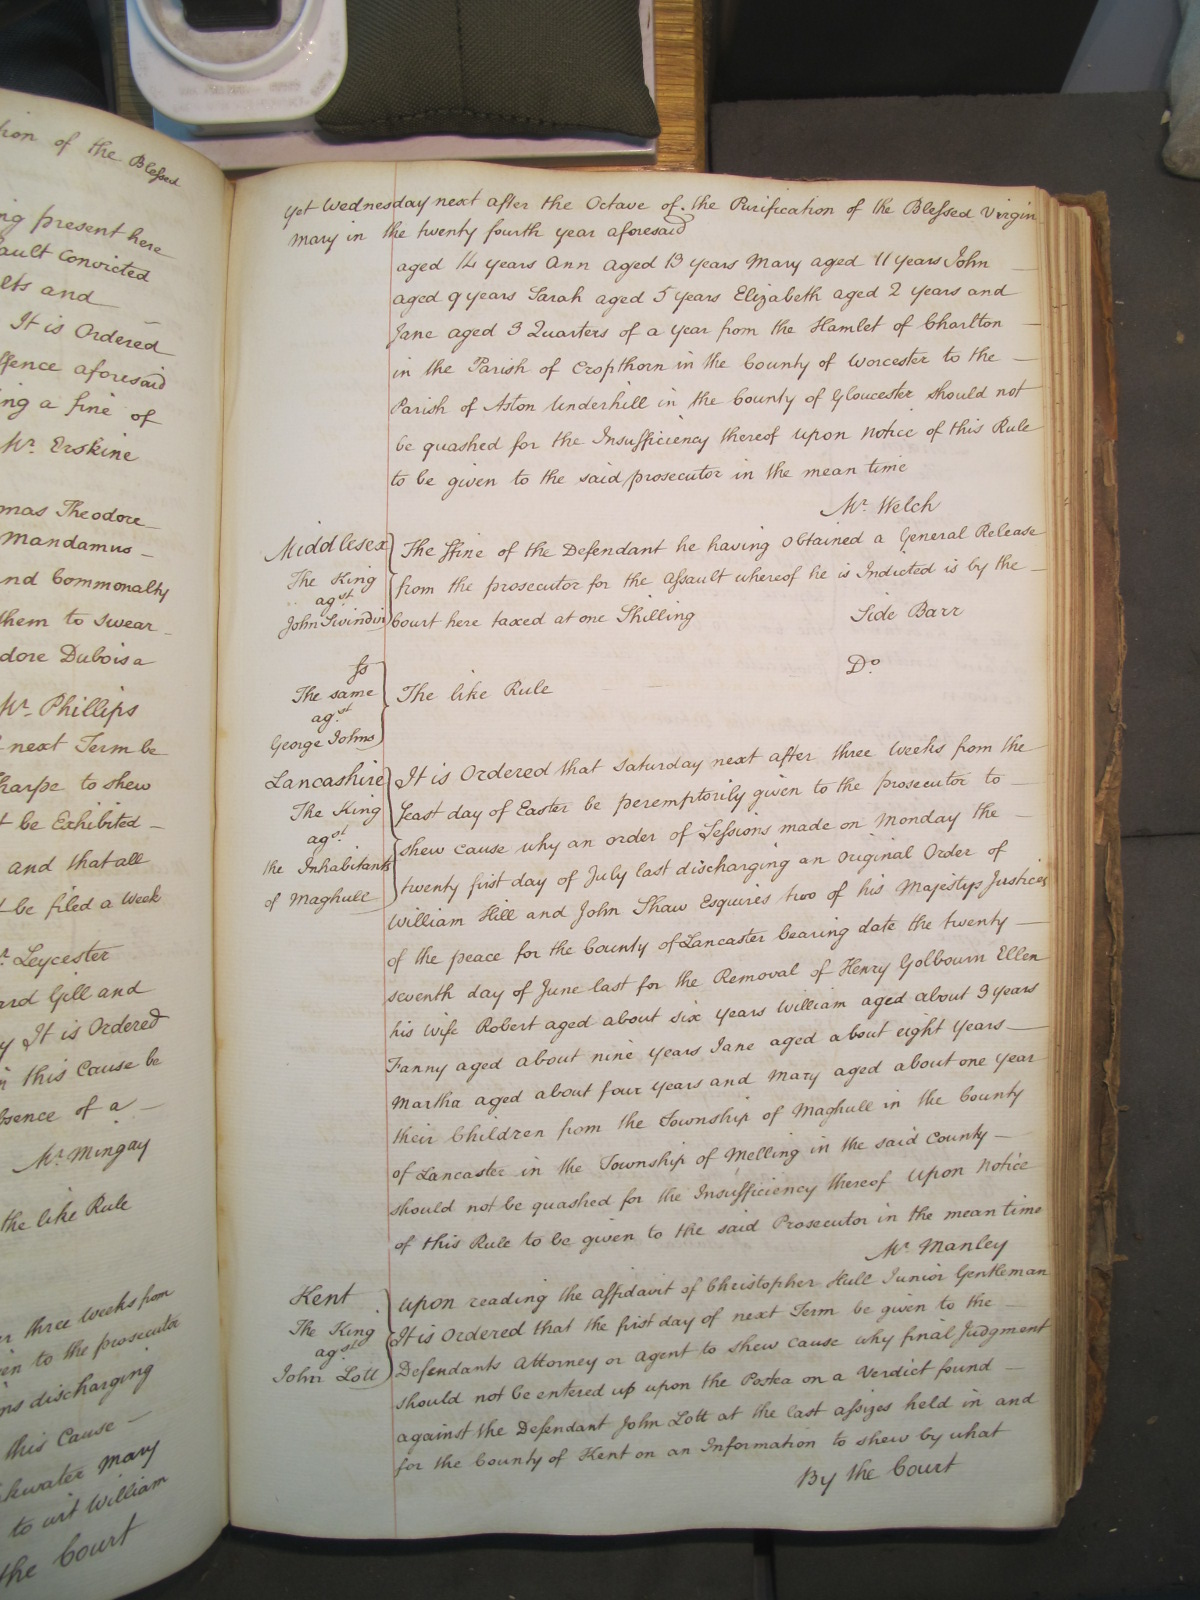 tion of the Blessed
ng present here
ault Convicted
lts and
It is Ordered
ffence aforesaid
ing a fine of
Mr. Erskine
mas Theodore
Mandamus
nd Commonalty
them to swear
dore Dubois a
Mr. Phillips
next Term be
harpe to shew
t be Exhibited
and that all
t be filed a Week
r. Leycester
ard Gill and
y It is Ordered
n this Cause be
bsence of a
Mr. Mingay
the like Rule
r three Weeks from
en to the prosecutor
ns discharging
this Cause
kwater Mary
to wit William
the Court
Yet Wednesday next after the Octave of the Purification of the Blessed Virgin
Mary in the twenty fourth year aforesaid
aged 14 years Ann aged 13 years Mary aged 11 years John
aged 9 years Sarah aged 5 years Elizabeth aged 2 years and
Jane aged 3 Quarters of a year from the Hamlet of Charlton
in the Parish of Cropthorn in the County of Worcester to the
Parish of Aston Underhill in the County of Gloucester should not
be quashed for the Insufficiency thereof upon Notice of this Rule
to be given to the said prosecutor in the mean time
Mr. Welch
Middlesex
The King
agst
John Swindin
The ffine of the Defendant he having Obtained a General Release
from the prosecutor for the Assault whereof he is Indicted is by the
Court here taxed at one Shilling Side Barr
ss
The same
agst
George Johns
The like Rule Do
Lancashire
The King
agst
the Inhabitants
of Maghull
It is Ordered that Saturday next after three Weeks from the
feast day of Easter be peremptorily given to the prosecutor to
shew cause why an order of Sessions made on Monday the
twenty first day of July last discharging an Original Order of
William Hill and John Shaw Esquires two of his Majestys Justices
of the peace for the County of Lancaster bearing date the twenty
seventh day of June last for the Removal of Henry Golbourn Ellen
his Wife Robert aged about six years William aged about 3 years
Fanny aged about nine years Jane aged about eight Years
Martha aged about four Years and Mary aged about one Year
their Children from the Township of Maghull in the County
of Lancaster in the Township of Melling in the said County
should not be quashed for the Insufficiency thereof Upon Notice
of this Rule to be given to the said Prosecutor in the mean time
Mr. Manley
Kent
The King
agst
John Lott
Upon reading the Affidavit of Christopher Hull Junior Gentleman
It is Ordered that the first day of next Term be given to the
Defendants Attorney or Agent to shew cause why final Judgment
should not be entered up upon the Postea on a Verdict found
against the Defendant John Lott at the last Assizes held in and
for the County of Kent on an Information to shew by what
By the Court